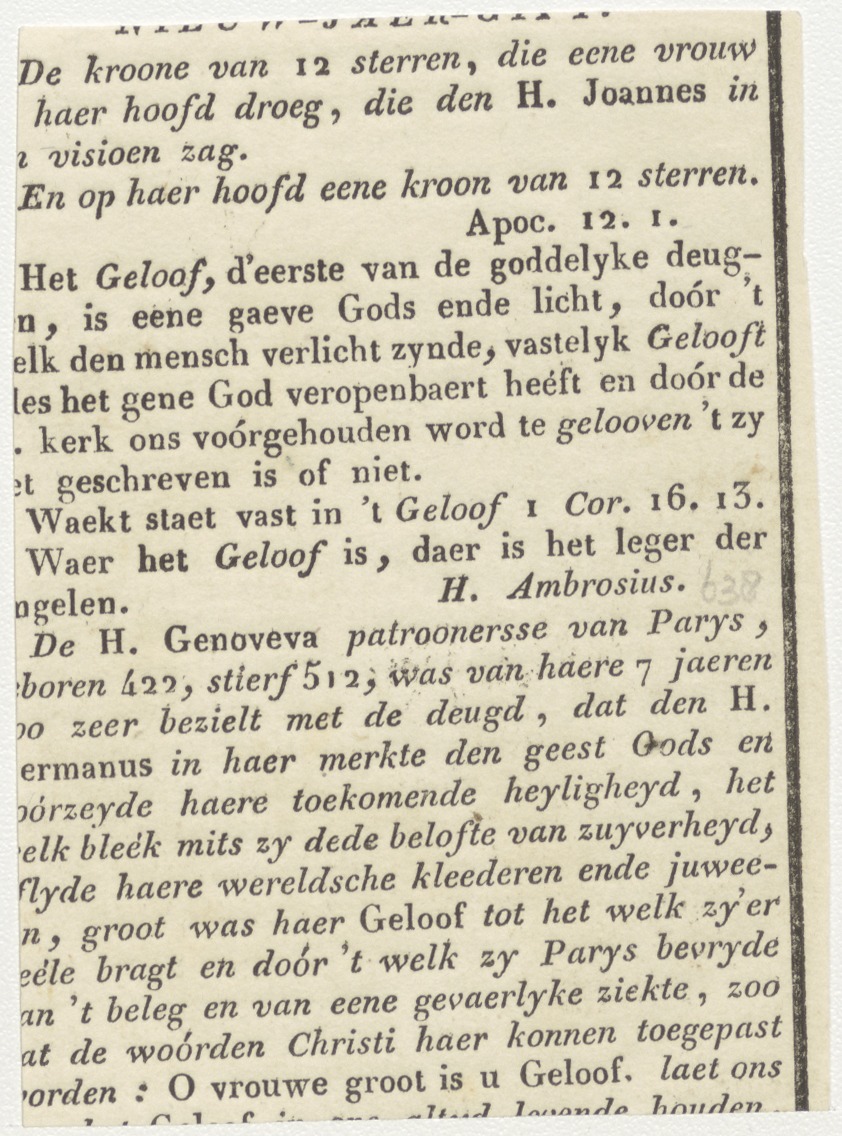 NIEUW-JAER-GIFT.
De kroone van 12 sterren, die eene vrouw
haer hoofd droeg, die den H. Joannes in
n visioen zag.
En op haer hoofd eene kroon van 12 sterren.
Apoc. 12. 1.
Het Geloof, d'eerste van de goddelyke deug-
n, is eene gaeve Gods ende licht, doór 't
elk den mensch verlicht zynde, vastelyk Gelooft
les het gene God veropenbaert heéft en doór de
. kerk ons voórgehouden word te gelooven 't zy
et geschreven is of niet.
Waekt staet vast in 't Geloof 1 Cor. 16. 13.
Waer het Geloof is, daer is het leger der
ngelen. H. Ambrosius. 638
De H. Genoveva patroonersse van Parys,
eboren 422, stierf 512, was van haere 7 jaeren
oo zeer bezielt met de deugd, dat den H.
ermanus in haer merkte den geest Gods en
oórzeyde haere toekomende heyligheyd, het
elk bleék mits zy dede belofte van zuyverheyd,
flyde haere wereldsche kleederen ende juwee-
n, groot was haer Geloof tot het welk zy'er
eéle bragt en doór 't welk zy Parys bevryde
an 't beleg en van eene gevaerlyke ziekte, zoo
at de woórden Christi haer konnen toegepast
orden : O vrouwe groot is u Geloof. laet ons
Geloof in ons altyd levende houden.